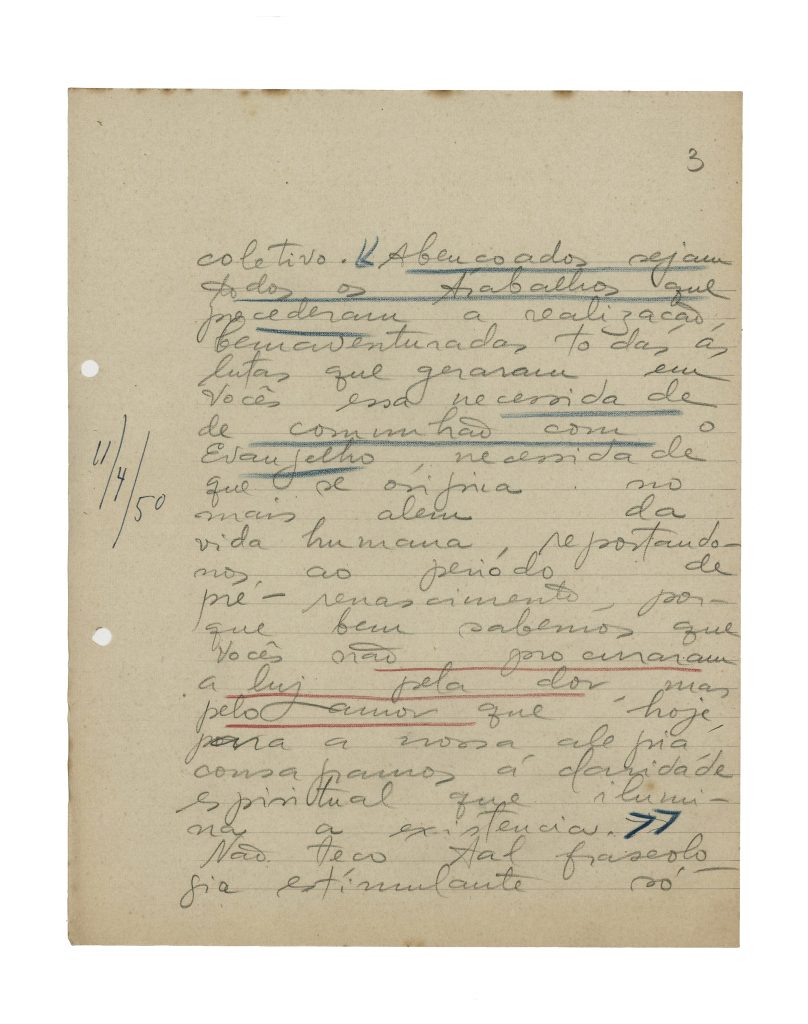 3
coletivo. « Abençoados sejam
todos os trabalhos que
precederam a realização
bemaventuradas todas ás
lutas que geraram em
Vocês essa necessidade
de comunhão com o
Evangelho, necessidade
que se origina no
mais alem da
vida humana, reportando-
nos, ao periódo de
pré-renascimento, por-
que bem sabemos que
Vocês não procuraram
a luz pela dor, mas
pelo amor que hoje,
para a nossa alegria
consagramos á claridade
espiritual que ilumi-
na a existencia. »
Não teco tal fraseolo-
gia estimulante só
11/4/50